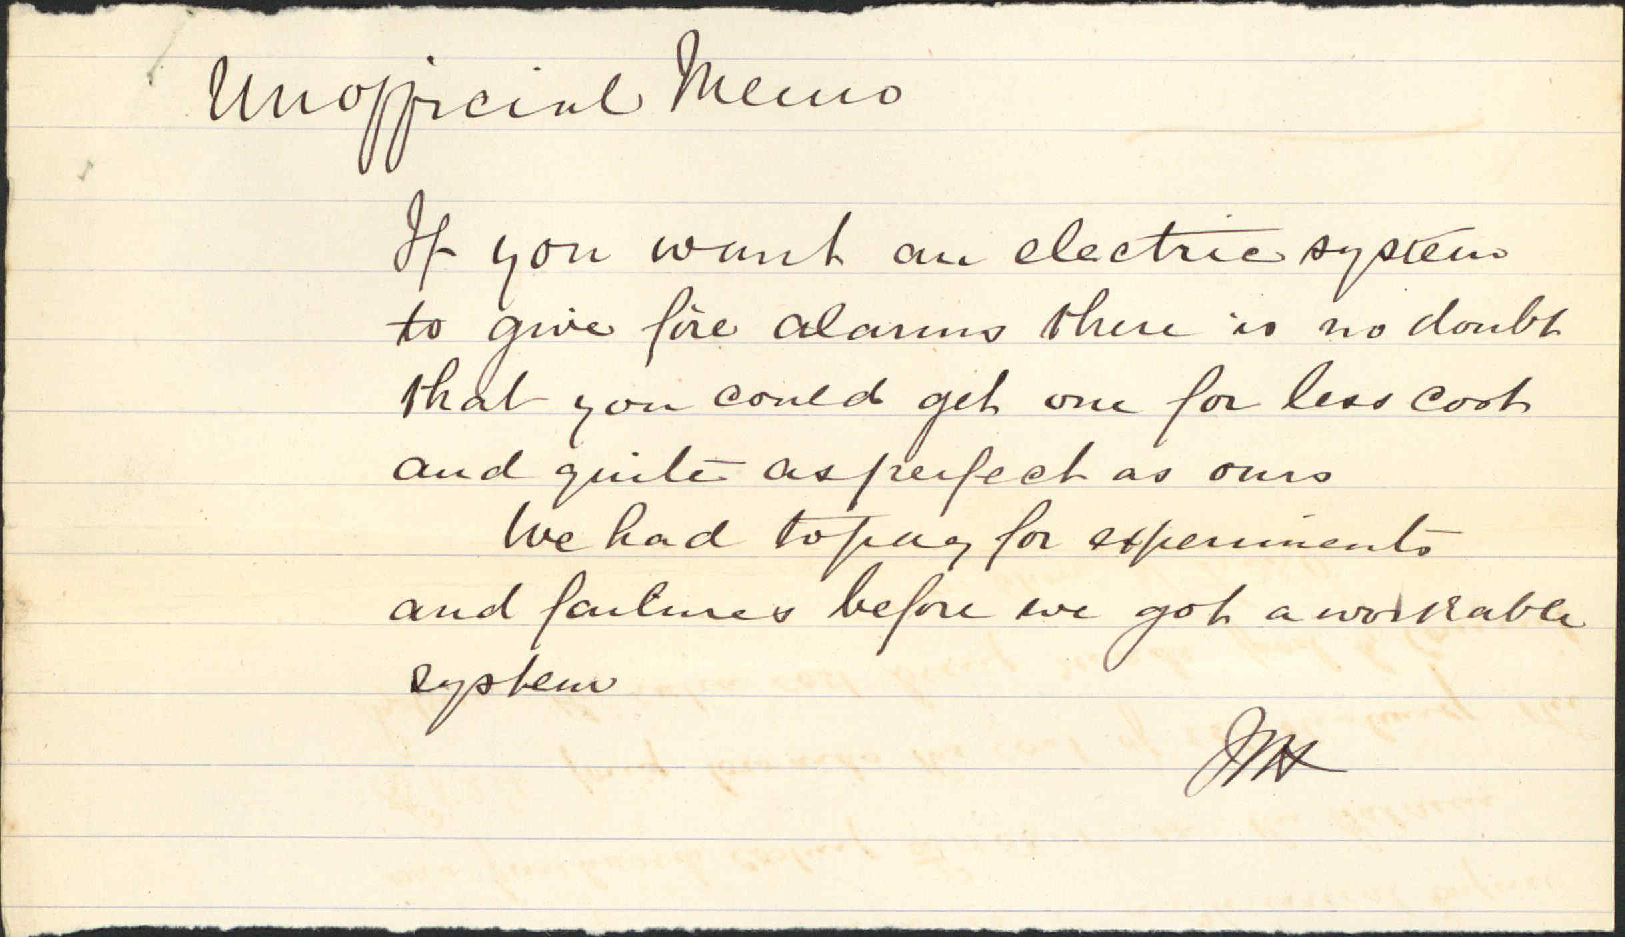 Unofficial Memo
If you want an electric system
to give fire alarms there is no doubt
that you could get one for less cost
and quite as perfect as ours
We had to pay for experiments
and failures before we got a workable
system